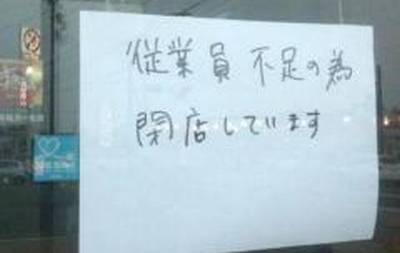 従業員不足の為
閉店しています